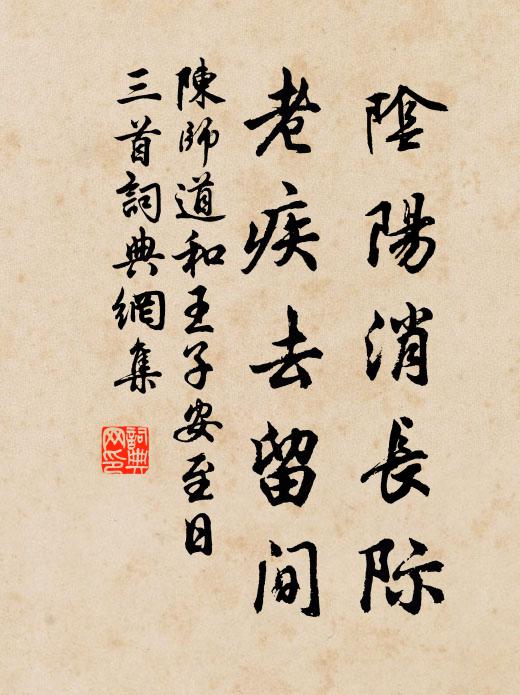 陰陽消長际
老疾去留间
陳師道和王子安至日
三首詞典網集
詞典
网印